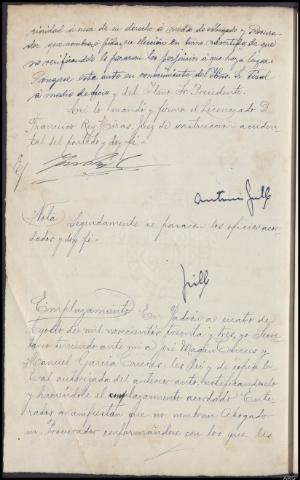 rinidad a usar de su derecho a medio de Abogado y Procura-
dor que nombre o pidan su elección en turno advertidos de que
no verificándolo le pararán los perjuicios a que haya lugar.
Póngase este auto en conocimiento del Ilmo. Sr. Fiscal
a medio de y del Ilmo Sr. Presidente.
Así lo mandó y firma el Licenciado D.
Francisco Rey Juez de instrucción acciden-
tal del partido y doy fé =
E/
Antonio
Nota Seguidamente se pasaron los oficios acor-
dados y doy fé =
Emplazamiento En Padrón a cuatro de
Agosto de mil novecientos treinta y tres, yo
teniendo ante mí a José Magán y
Manuel García les leí y dí copia li-
teral autorizada del anterior auto, notificándoselo
y haciéndole el emplazamiento acordado. Ente-
rados manifiestan que no nombran Abogado
ni Procurador conformándose con los que les